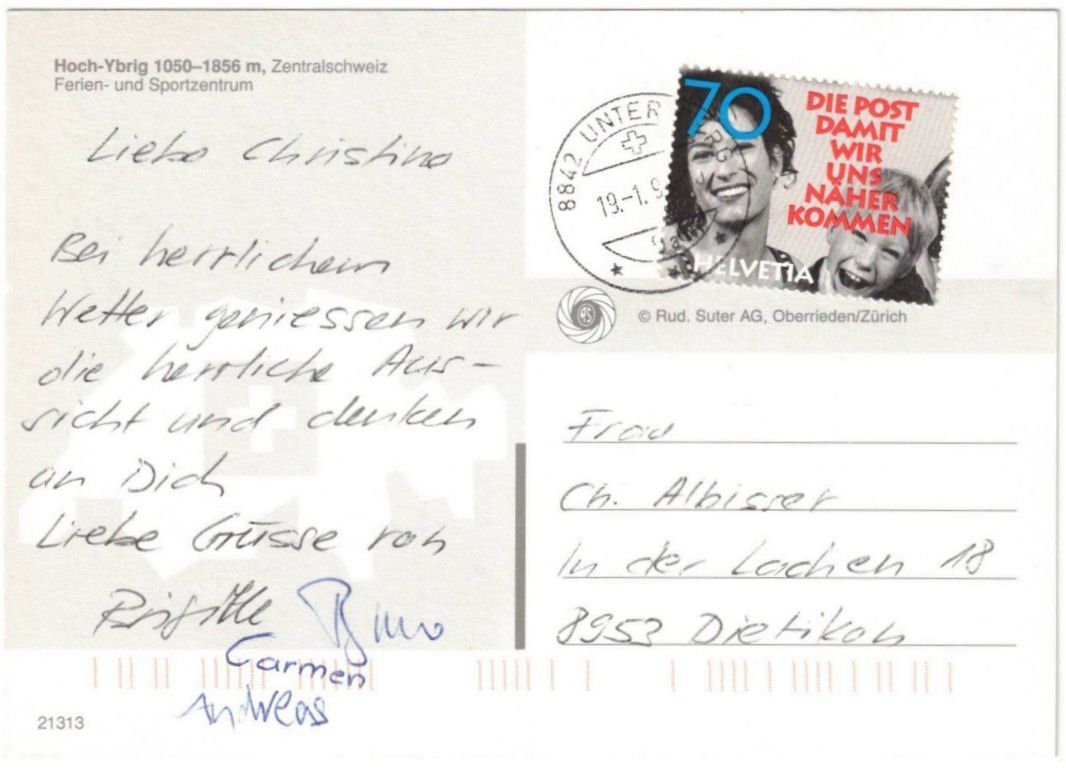 Hoch-Ybrig 1050–1856 m, Zentralschweiz
Ferien- und Sportzentrum
Liebe Christina
Bei herrlichem
Wetter geniessen wir
die herrliche Aus-
sicht und denken
an Dich
Liebe Grüsse von
Brigitte Bruno
Carmen
Andreas
21313
8842 UNTER
19.-1.9
70
DIE POST
DAMIT
WIR
UNS
NÄHER
KOMMEN
HELVETIA
© Rud. Suter AG, Oberrieden/Zürich
Frau
Ch. Albisser
In der Lachen 18
8953 Dietikon